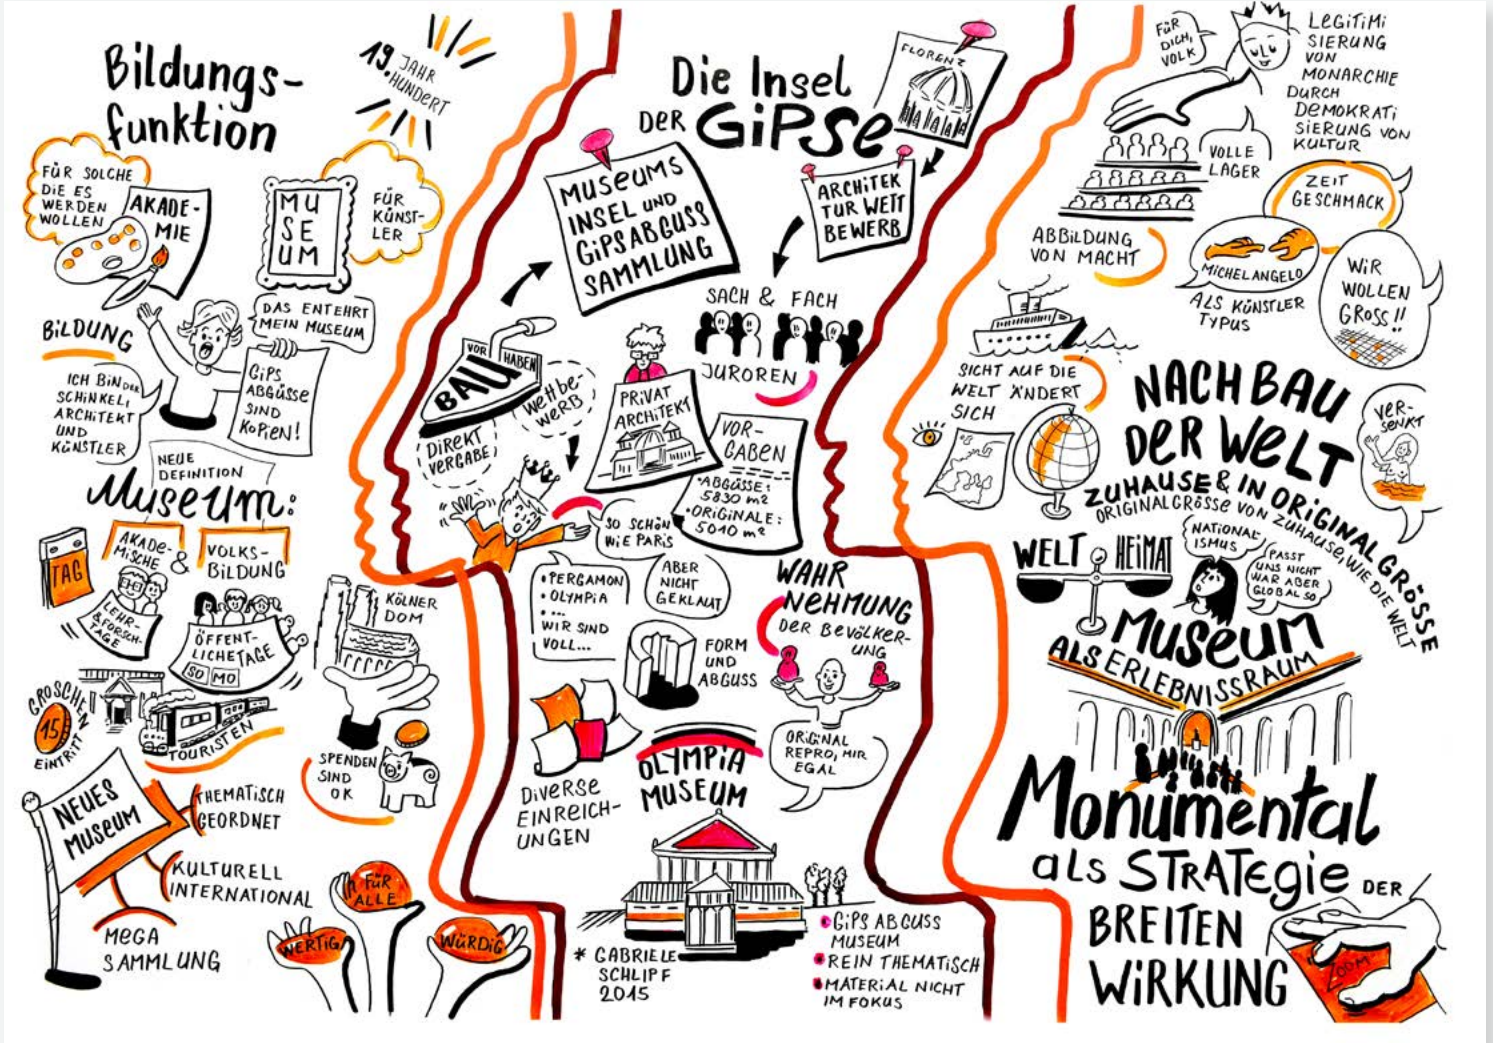 Bildungs-
funktion
19. JAHR
HUNDERT
FÜR SOLCHE
DIE ES
WERDEN
WOLLEN
AKADE-
MIE
MU
SE
UM
FÜR
KÜNST-
LER
BILDUNG
DAS ENTEHRT
MEIN MUSEUM
ICH BIN DER
SCHINKEL,
ARCHITEKT
UND
KÜNSTLER
GIPS
ABGÜSSE
SIND
KOPIEN!
NEUE
DEFINITION
Museum:
TAG
AKADE-
MISCHE
&
VOLKS-
BILDUNG
LEHR-
&FORSCH-
TAGE
ÖFFENT-
LICHE TAGE
SO MO
GROSCHEN
15
EINTRITT
TOURISTEN
KÖLNER
DOM
SPENDEN
SIND
OK
NEUES
MUSEUM
THEMATISCH
GEORDNET
KULTURELL
INTERNATIONAL
MEGA
SAMMLUNG
WERTIG
FÜR
ALLE
WÜRDIG
Die Insel
DER GIPSe
FLORENZ
MUSEUMS
INSEL UND
GIPSABGUSS
SAMMLUNG
ARCHITEK
TUR WETT
BEWERB
SACH & FACH
JUROREN
VOR
HABEN
BAU
DIREKT
VERGABE
Wettbe-
WERB
PRIVAT
ARCHITEKT
VOR-
GABEN
•ABGÜSSE:
5830 m²
•ORIGINALE:
5010 m²
SO SCHÖN
WIE PARIS
ABER
NICHT
GEKLAUT
• PERGAMON
• OLYMPIA
• ...
WIR SIND
VOLL...
FORM
UND
ABGUSS
WAHR
NEHMUNG
DER BEVÖLKER-
UNG
ORIGINAL
REPRO, MIR
EGAL
DIVERSE
EINREICH-
UNGEN
OLYMPIA
MUSEUM
* GABRIELE
SCHLIPF
2015
• GIPS ABGUSS
MUSEUM
• REIN THEMATISCH
• MATERIAL NICHT
IM FOKUS
FÜR
DICH,
VOLK
LEGITIMI
SIERUNG
VON
MONARCHIE
DURCH
DEMOKRATI
SIERUNG VON
KULTUR
VOLLE
LAGER
ABBILDUNG
VON MACHT
ZEIT
GESCHMACK
MICHELANGELO
ALS KÜNSTLER
TYPUS
WIR
WOLLEN
GROSS!!
SICHT AUF DIE
WELT ÄNDERT
SICH
NACHBAU
DER WELT
ZUHAUSE & IN ORIGINALGRÖSSE
ORIGINALGRÖSSE VON ZUHAUSE, WIE DIE WELT
VER-
SENKT
WELT
HEIMAT
NATIONAL
ISMUS
PASST
UNS NICHT
WAR ABER
GLOBAL SO
MUSEUM
ALS ERLEBNISSRAUM
Monumental
als STRATEGIE DER
BREITEN
WIRKUNG
ZOOM